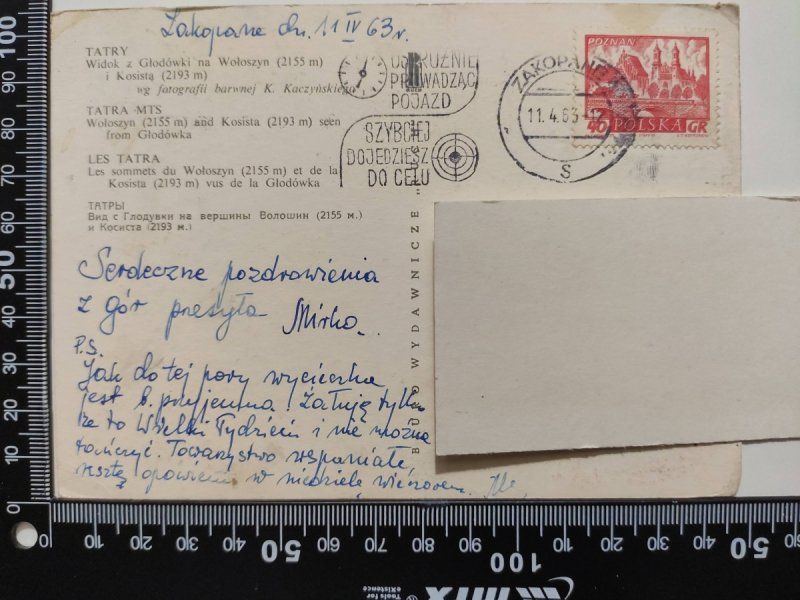 Zakopane dn. 11 IV 63 r.
TATRY
Widok z Głodówki na Wołoszyn (2155 m)
i Kosistą (2193 m)
wg fotografii barwnej K. Kaczyńskiego
TATRA MTS
Wołoszyn (2155 m) and Kosista (2193 m) seen
from Głodówka
LES TATRA
Les sommets du Wołoszyn (2155 m) et de la
Kosista (2193 m) vus de la Głodówka
ТАТРЫ
Вид с Глодувки на вершины Волошин (2155 м.)
и Косиста (2193 м.)
OSTROŻNIE
PROWADZĄC
POJAZD
SZYBCIEJ
DOJEDZIESZ
DO CELU
ZAKOPANE
11.4.63-12
S
POZNAŃ
40 POLSKA GR
BIURO WYDAWNICZE "
Serdeczne pozdrowienia
z gór przesyła Mirka.
P.S.
Jak do tej pory wycieczka
jest b. przyjemna! Żałuję tylko
że to Wielki Tydzień i nie można
tańczyć. Towarzystwo wspaniałe,
resztę opowiem w niedziele wieczorem.
100
50
10
0
10 20 30 40 50 60 70 80 90 100 10 20 30 40 50
Tools for
eXistence